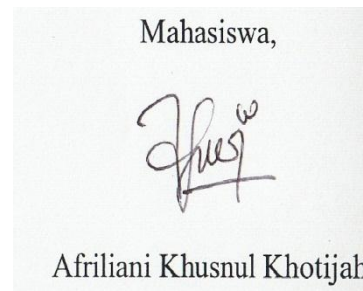 Mahasiswa,
Afriliani Khusnul Khotijah